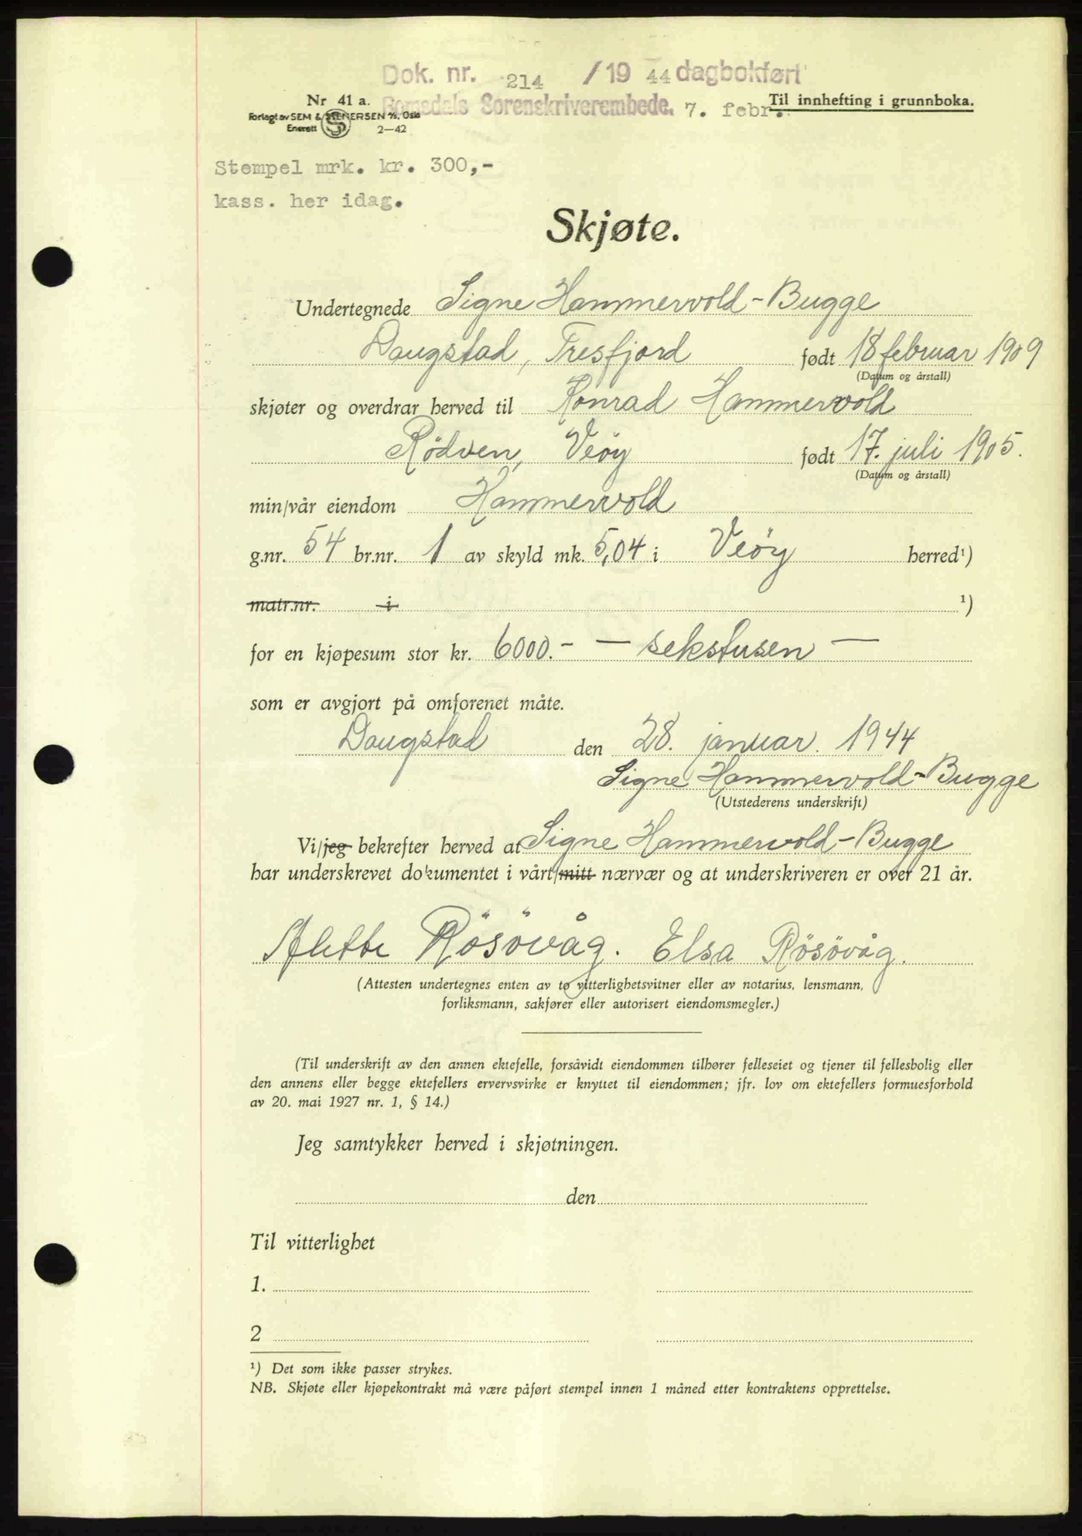 Dok. nr. 214 / 19 44 dagbokført
Nr 41 a.
Romsdals Sorenskriverembede. 7. febr.
Til innhefting i grunnboka.
Forlagt av SEM & STENERSEN A/S, Oslo
Enerett S 2–42
Stempel mrk. kr. 300,-
kass. her idag.
Skjøte.
Undertegnede Signe Hammervold-Bugge
Daugstad, Tresfjord født 18 februar 1909
(Datum og årstall)
skjøter og overdrar herved til Konrad Hammervold
Rødven, Veøy født 17. juli 1905.
(Datum og årstall)
min/vår eiendom Hammervold
g.nr. 54 br.nr. 1 av skyld mk. 5,04 i Veøy herred¹)
matr.nr. i ¹)
for en kjøpesum stor kr. 6000.- — sekstusen —
som er avgjort på omforenet måte.
Daugstad den 28. januar. 1944
Signe Hammervold-Bugge
(Utstederens underskrift)
Vi/jeg bekrefter herved at Signe Hammervold-Bugge
har underskrevet dokumentet i vårt/mitt nærvær og at underskriveren er over 21 år.
Alette Rösövåg. Elsa Rösövåg.
(Attesten undertegnes enten av to vitterlighetsvitner eller av notarius, lensmann,
forliksmann, sakfører eller autorisert eiendomsmegler.)
(Til underskrift av den annen ektefelle, forsåvidt eiendommen tilhører felleseiet og tjener til fellesbolig eller
den annens eller begge ektefellers ervervsvirke er knyttet til eiendommen; jfr. lov om ektefellers formuesforhold
av 20. mai 1927 nr. 1, § 14.)
Jeg samtykker herved i skjøtningen.
den
Til vitterlighet
1.
2
¹) Det som ikke passer strykes.
NB. Skjøte eller kjøpekontrakt må være påført stempel innen 1 måned etter kontraktens opprettelse.